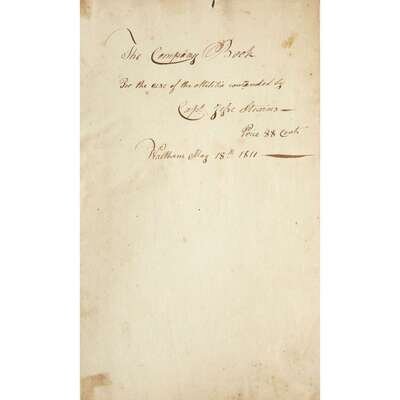 The Company Book
For the use of the Militia commanded by
Capt.
Price 88 Cents
Waltham May 18th 1811